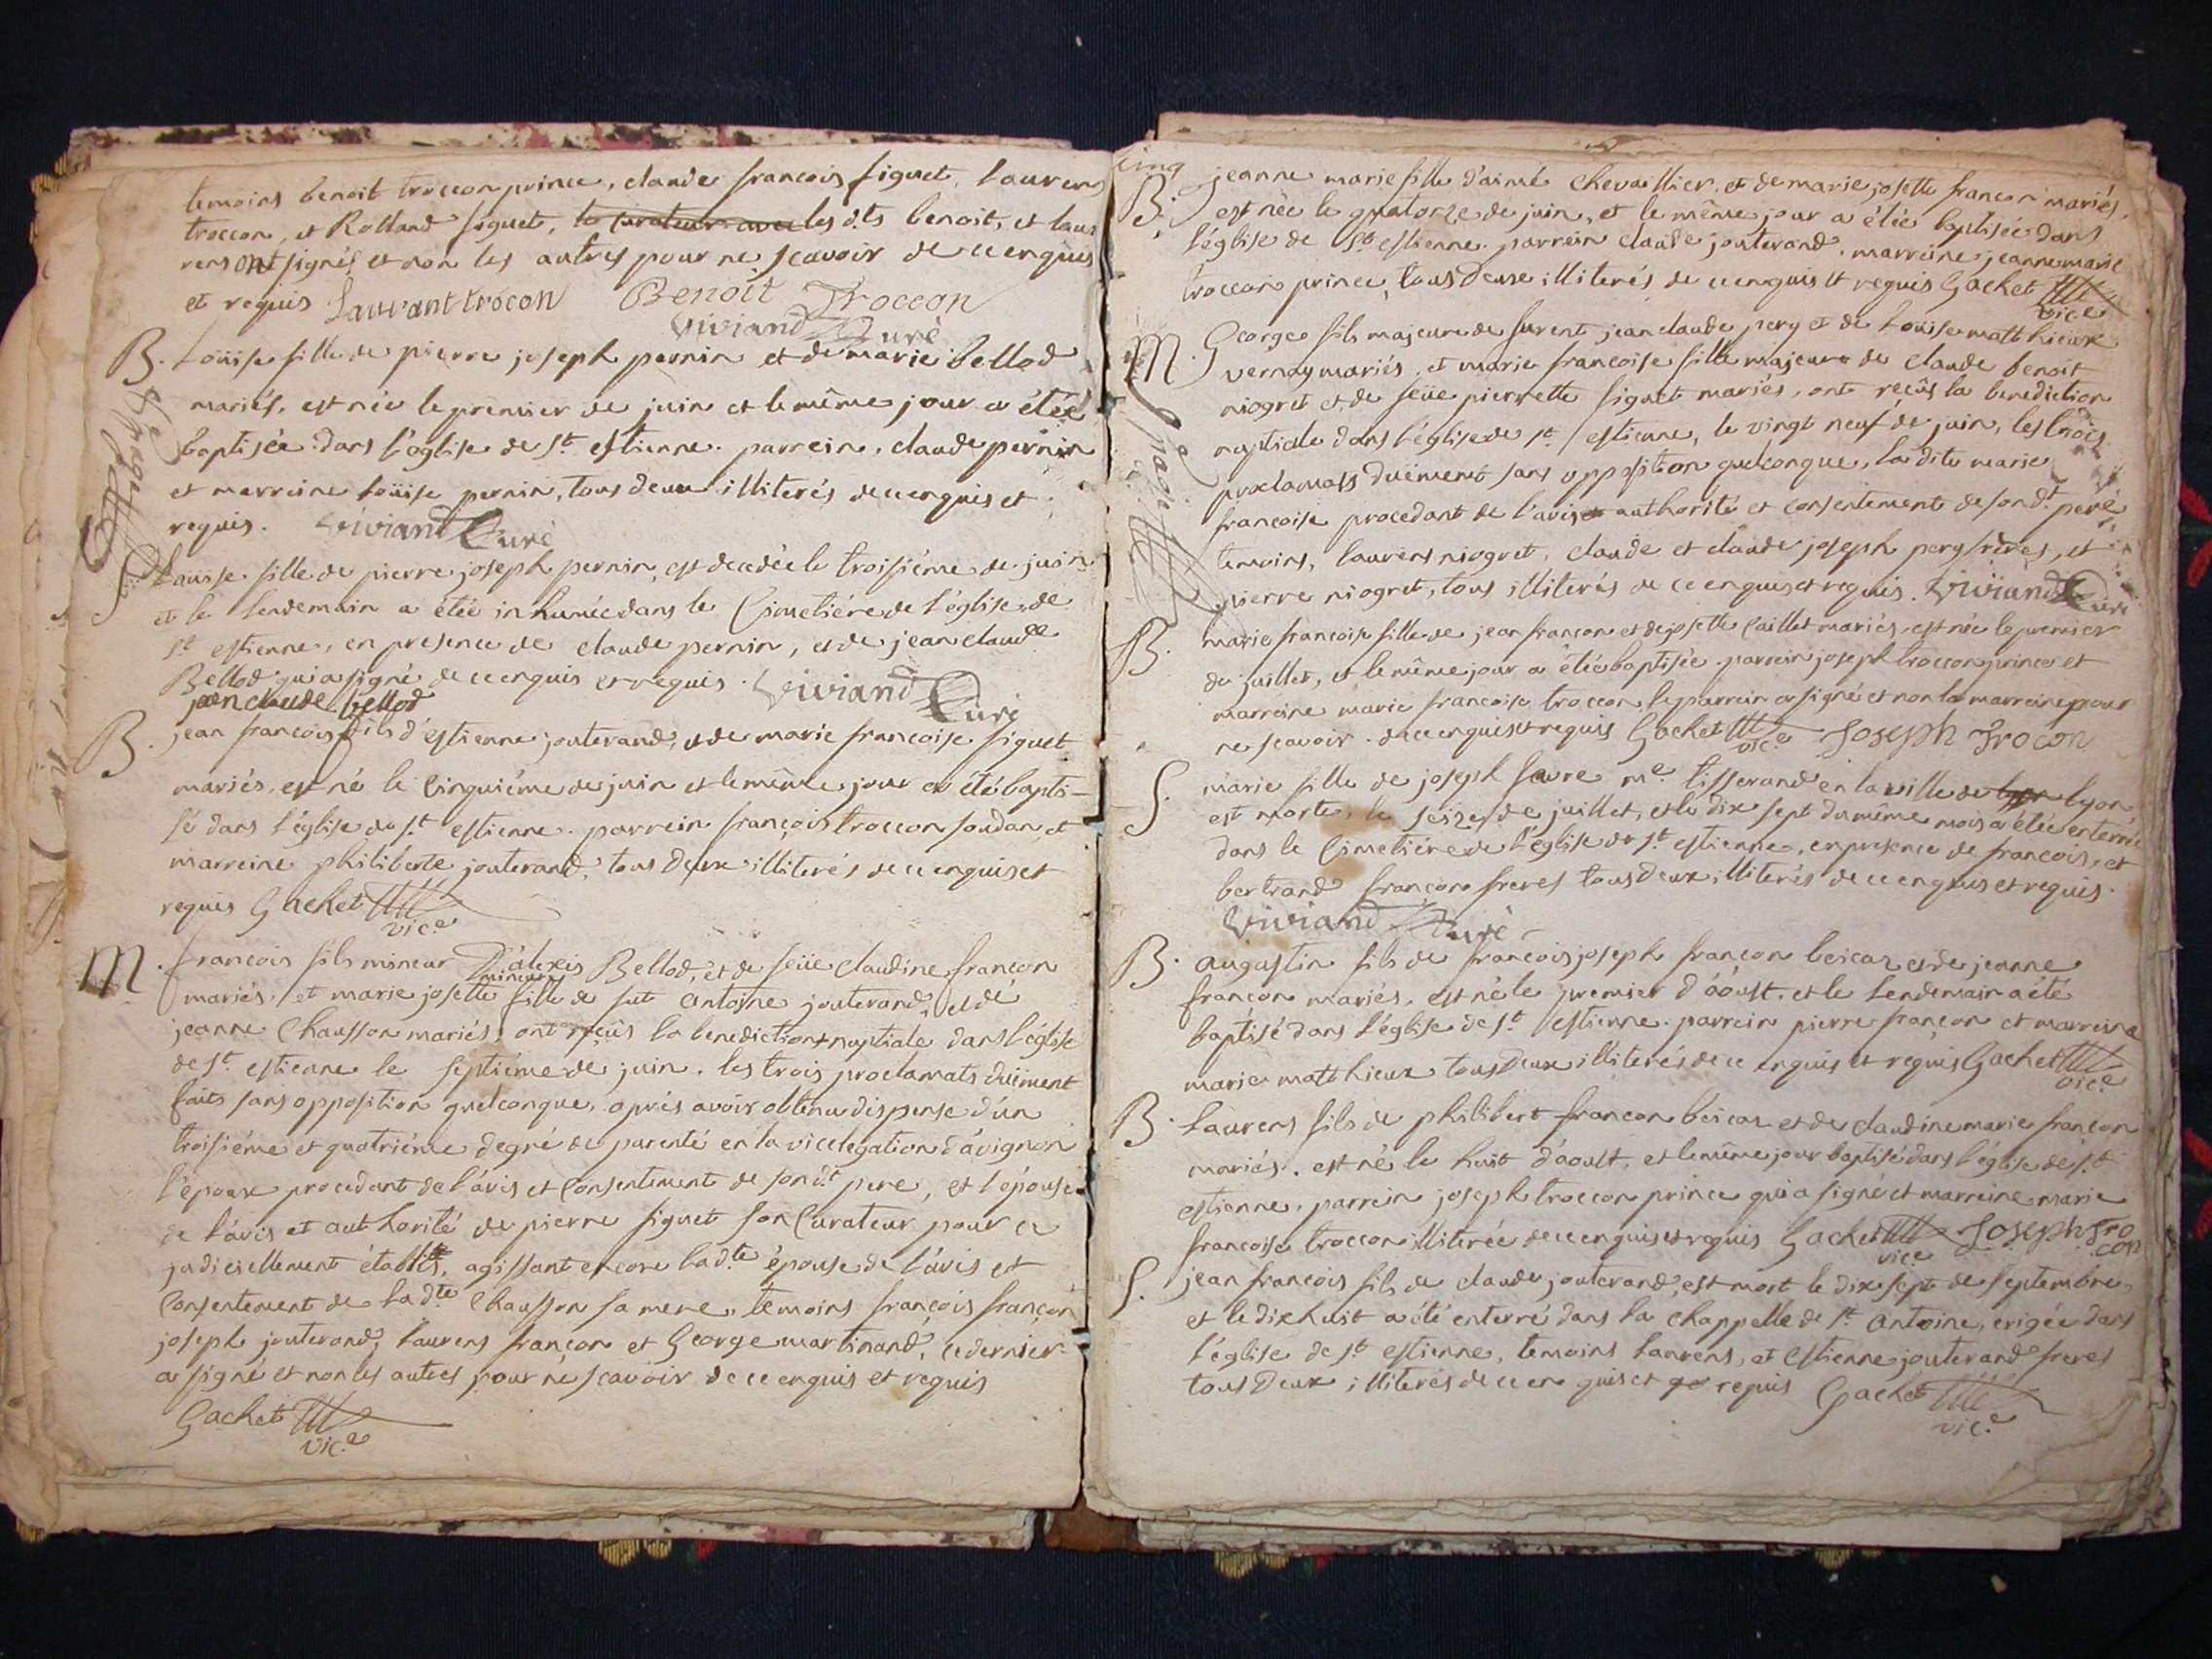 temoins benoit troccon prince, claude francois siguet, laurens
troccon, et Rolland siguet, le curateur avec les d.ts benoit, et lau
rens ont signés et non les autres pour ne scavoir de ce enquis
et requis Lauvant trocon Benoit Troccon
Viviand Curé
B. Loüise fille de pierre joseph pernin et de marie bellod
mariés, est née le premier de juin et le même jour a étée
baptisée dans l'église de St. estienne. parrein, claude pernin
et marreine Loüise pernin, tous deux illiterés de ce enquis et
requis. Viviand Curé
S. Louise fille de pierre joseph pernin, est decedée le troisiéme de juin
et le lendemain a étée inhumée dans le Cimetiére de l'église de
St. estienne, en presence de claude pernin, et de jean claude
Bellod qui a signé de ce enquis et requis. Viviand Curé
jean claude bellod
B. jean francois fils d'estienne jouterand, et de marie francoise siguet
mariés, est né le Cinquiéme de juin et le même jour a été bapti-
sé dans l'église de St. estienne. parrein françois troccon soudan, et
marreine philiberte jouterand, tous deux illiterés de ce enquis et
requis Gachet
vic.e
M. francois fils mineur d'alexis Bellod, et de feüe claudine françon
mariés, et marie josette mineure fille de fut Antoine jouterand, et de
jeanne Chausson mariés, ont reçûs la benediction nuptiale dans l'église
de St. estienne le septiéme de juin. les trois proclamats düement
faits sans opposition quelconque, aprés avoir obtenu dispense d'un
troisiéme et quatriéme degré de parenté en la vicelegation d'avignon
l'epoux procedant de l'avis et Consentement de son dt. pere, et l'épouse
de l'avis et authorité de pierre siguet son Curateur pour ce
judiciellement établit, agissant encore lad.te épouse de l'avis et
Consentement de lad.te Chausson sa mere. temoins françois françon,
joseph jouterand, laurens françon et George martinand, ce dernier
a signé et non les autres pour ne scavoir de ce enquis et requis
Gachet
vic.e
cinq
B. jeanne marie fille d'aimé chevaillier, et de marie josette françon mariés,
est née le quatorze de juin, et le même jour a étée baptisée dans
l'église de St. estienne. parrein claude jouterand, marreine jeanne marie
troccon prince, tous deux illiterés de ce enquis et requis Gachet
vic.e
M. George fils majeur de furent jean claude pery et de Loüise matthieux
vernay mariés, et marie francoise fille majeure de claude benoit
niogret et de feüe pierrette siguet mariés, ont reçûs la benediction
nuptiale dans l'église de St. estienne, le vingt neuf de juin, les trois
proclamats düement sans opposition quelconque, la dite marie
francoise procedant de l'avis authorité et consentement de son dt. pere
temoins, laurens niogret, claude et claude joseph pery freres, et
pierre niogret, tous illiterés de ce enquis et requis. Viviand Curé
B. marie francoise fille de jean françon et de josette Caillet mariés, est née le premier
de juillet, et le même jour a étée baptisée. parrein joseph troccon prince et
marreine marie francoise troccon, le parrein a signé et non la marreine pour
ne scavoir. de ce enquis et requis Gachet vic.e Joseph Trocon
S. marie fille de joseph favre m.e tisserand en la ville de lyon
est morte, le seize de juillet, et le dix sept du même mois a étée enterrée
dans le Cimetiére de l'église de St. estienne, en presence de francois, et
bertrand françon freres tous deux illiterés de ce enquis et requis.
Viviand Curé
B. augustin fils de francois joseph françon beicar, et de jeanne
françon mariés, est né le premier d'âoust, et le lendemain a été
baptisé dans l'église de St. estienne. parrein pierre françon et marreine
marie matthieux tous deux illiterés de ce enquis et requis Gachet
vic.e
B. Laurens fils de philibert françon beicar et de claudine marie françon
mariés, est né le huit d'aoult, et le même jour baptisé dans l'église de St.
estienne, parrein joseph troccon prince qui a signé et marreine marie
francoise troccon illiterée de ce enquis et requis Gachet vic.e Joseph Tro
con
S. jean francois fils de claude jouterand, est mort le dix sept de septembre,
et le dix huit a été enterré dans la chappelle de St. Antoine, erigée dans
l'église de St. estienne, temoins Laurens, et Estienne jouterand freres
tous deux illiterés de ce en quis et requis Gachet
vic.e